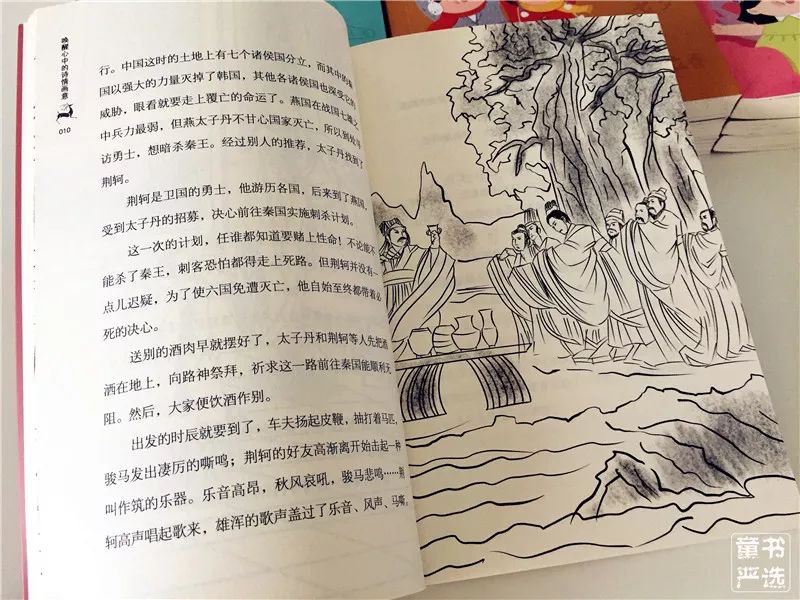 唤醒心中的诗情画意
010
行。中国这时的土地上有七个诸侯国分立，而其中的秦
国以强大的力量灭掉了韩国，其他各诸侯国也深受它的
威胁，眼看就要走上覆亡的命运了。燕国在战国七雄之
中兵力最弱，但燕太子丹不甘心国家灭亡，所以到处寻
访勇士，想暗杀秦王。经过别人的推荐，太子丹找到了
荆轲。
荆轲是卫国的勇士，他游历各国，后来到了燕国，
受到太子丹的招募，决心前往秦国实施刺杀计划。
这一次的计划，任谁都知道要赌上性命！不论能不
能杀了秦王，刺客恐怕都得走上死路。但荆轲并没有一
点儿迟疑，为了使六国免遭灭亡，他自始至终都带着必
死的决心。
送别的酒肉早就摆好了，太子丹和荆轲等人先把酒
洒在地上，向路神祭拜，祈求这一路前往秦国能顺利无
阻。然后，大家便饮酒作别。
出发的时辰就要到了，车夫扬起皮鞭，抽打着马匹，
骏马发出凄厉的嘶鸣；荆轲的好友高渐离开始击起一种
叫作筑的乐器。乐音高昂，秋风哀吼，骏马悲鸣……荆
轲高声唱起歌来，雄浑的歌声盖过了乐音、风声、马嘶。
童书
严选